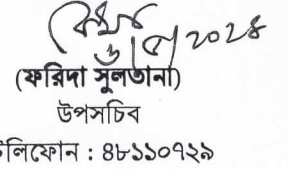 ৬/৫/২০২৪
(ফরিদা সুলতানা)
উপসচিব
টেলিফোন : ৪৮১১০৭২৯